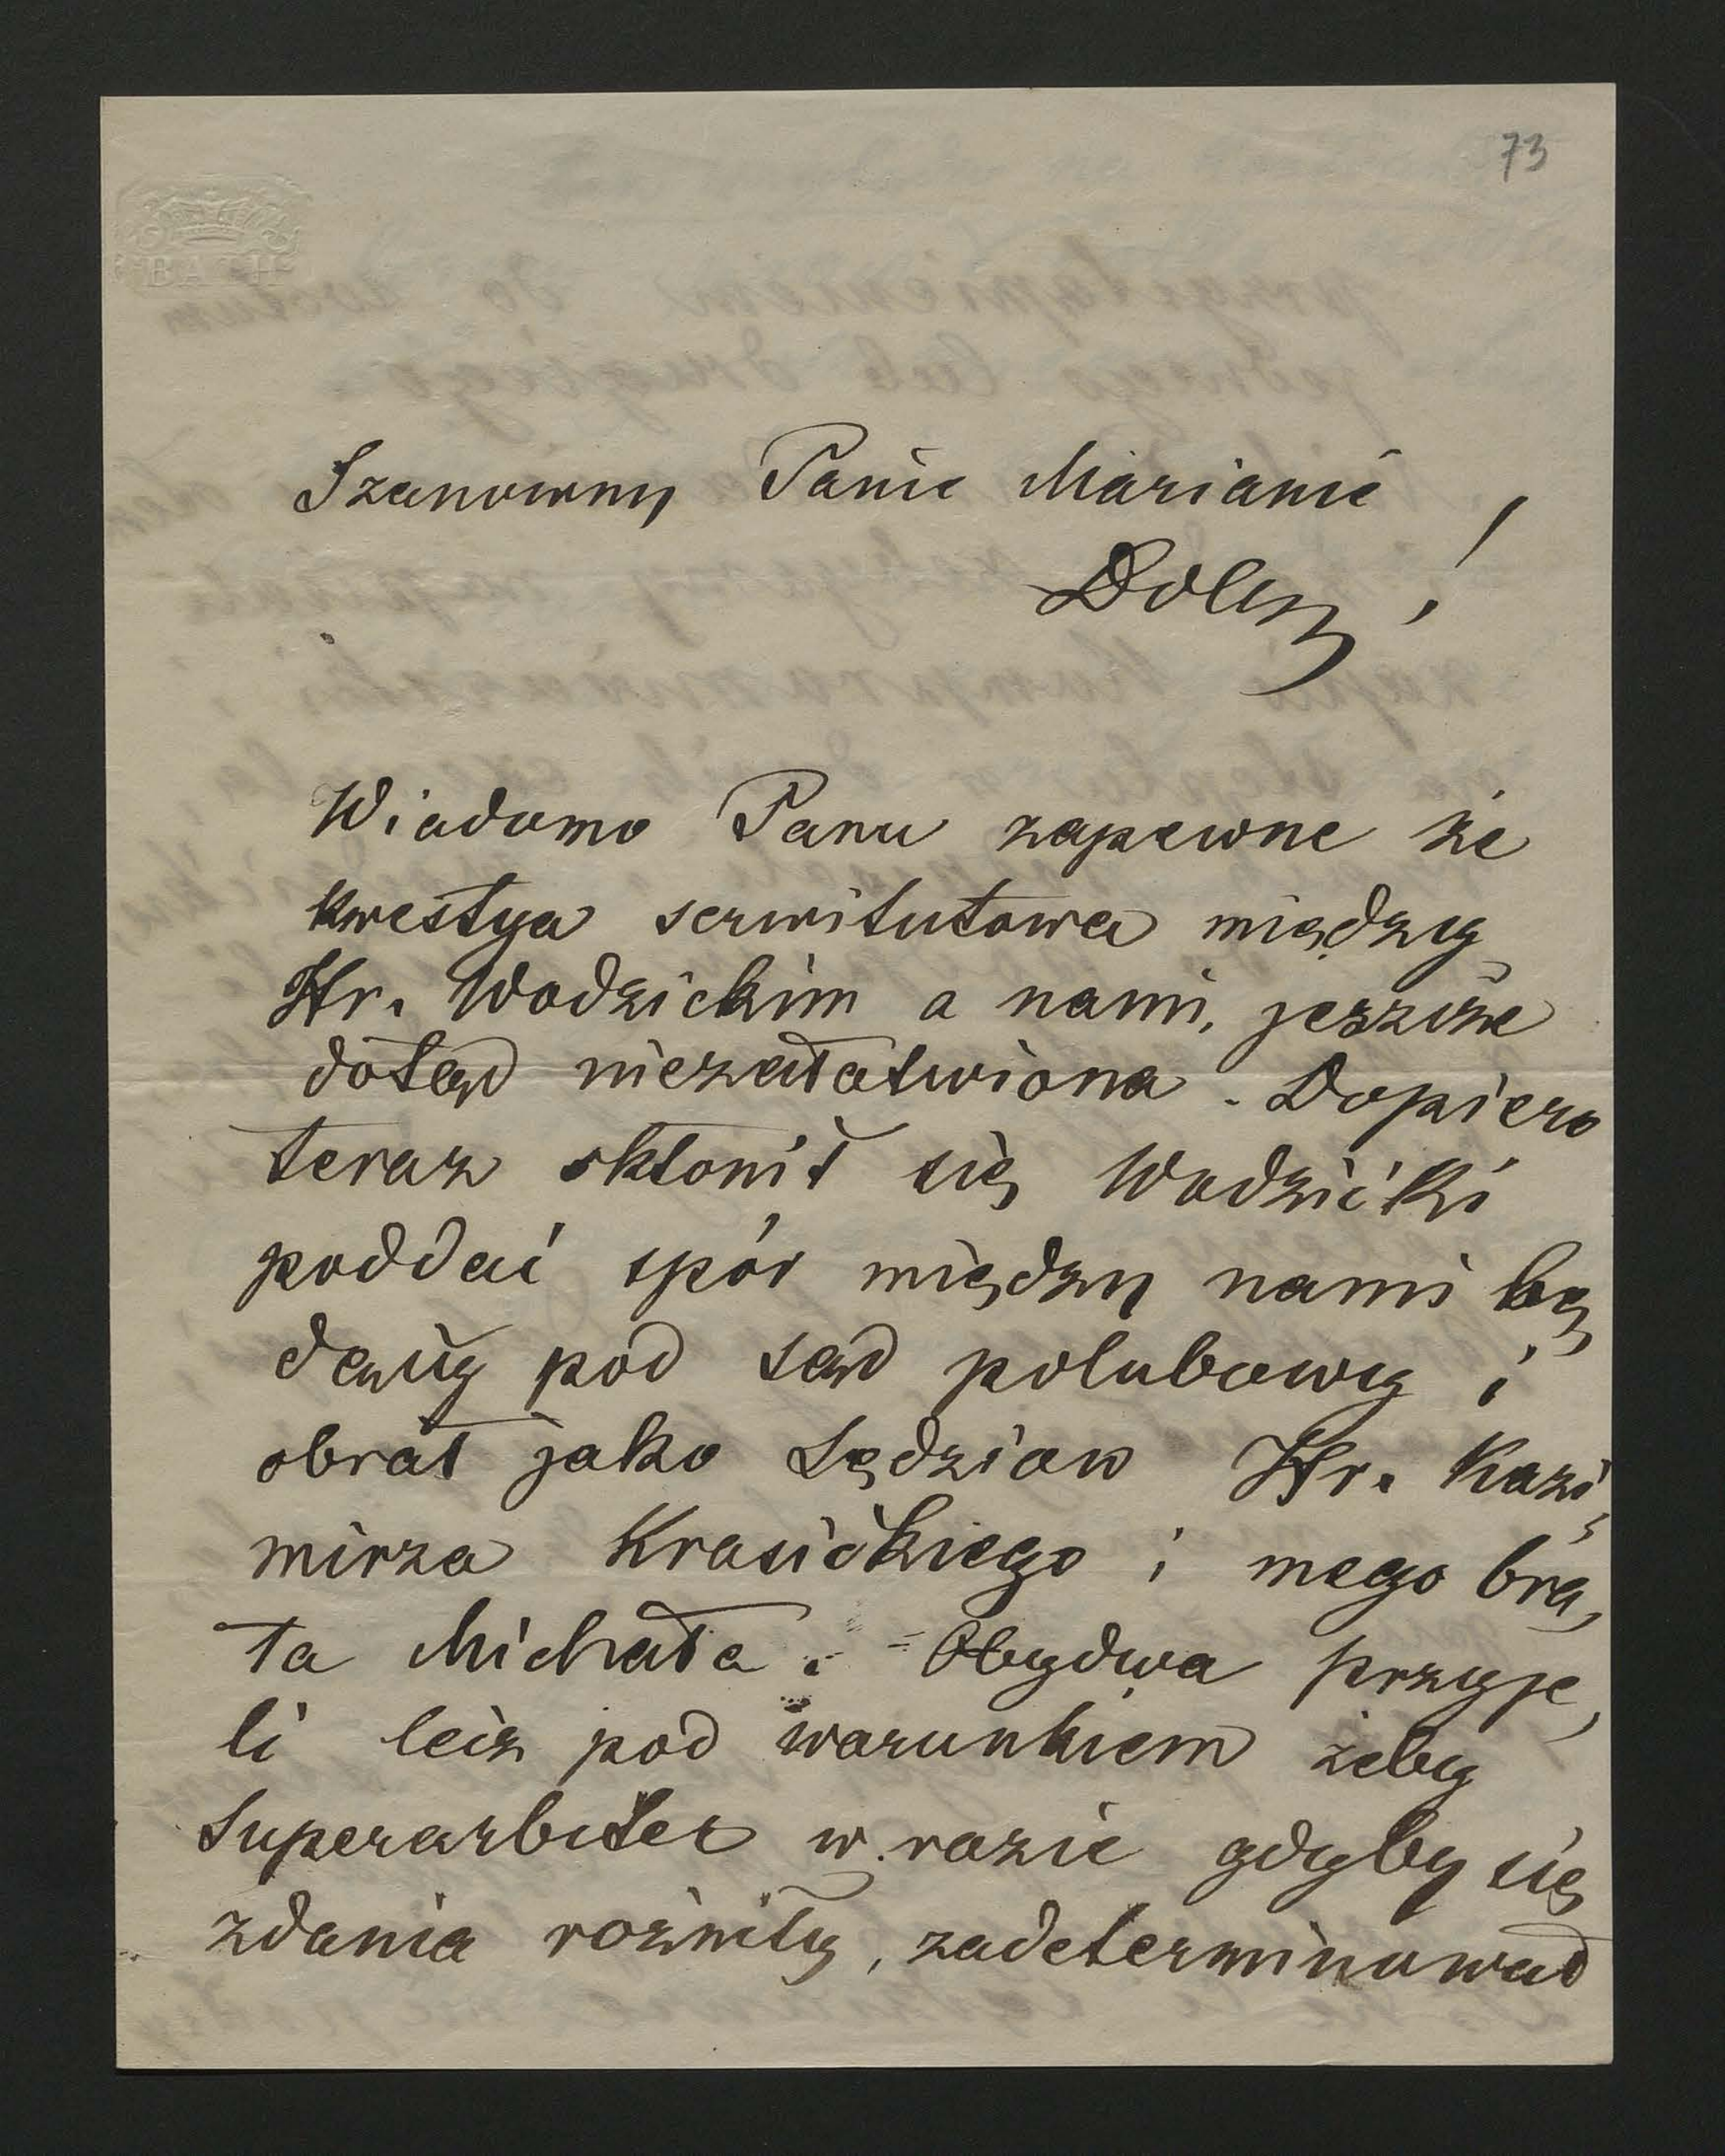 73
BATH
Szanowny Panie Marianie
Dobry !
Wiadomo Panu zapewne że
kwestya serwitutowa między
Hr. Wodzickim a nami, jeszcze
dotąd niezałatwiona. Dopiero
teraz skłonił się Wodzicki
poddać spór między nami bę,
dący pod sąd polubowy i
obrał jako Sędziow Hr. Kazi,
mirza Krasickiego i mego bra,
ta Michała. - Obydwa przyje,
li lecz pod warunkiem żeby
Superarbiter w razie gdyby się
zdania rożniły, zadeterminował